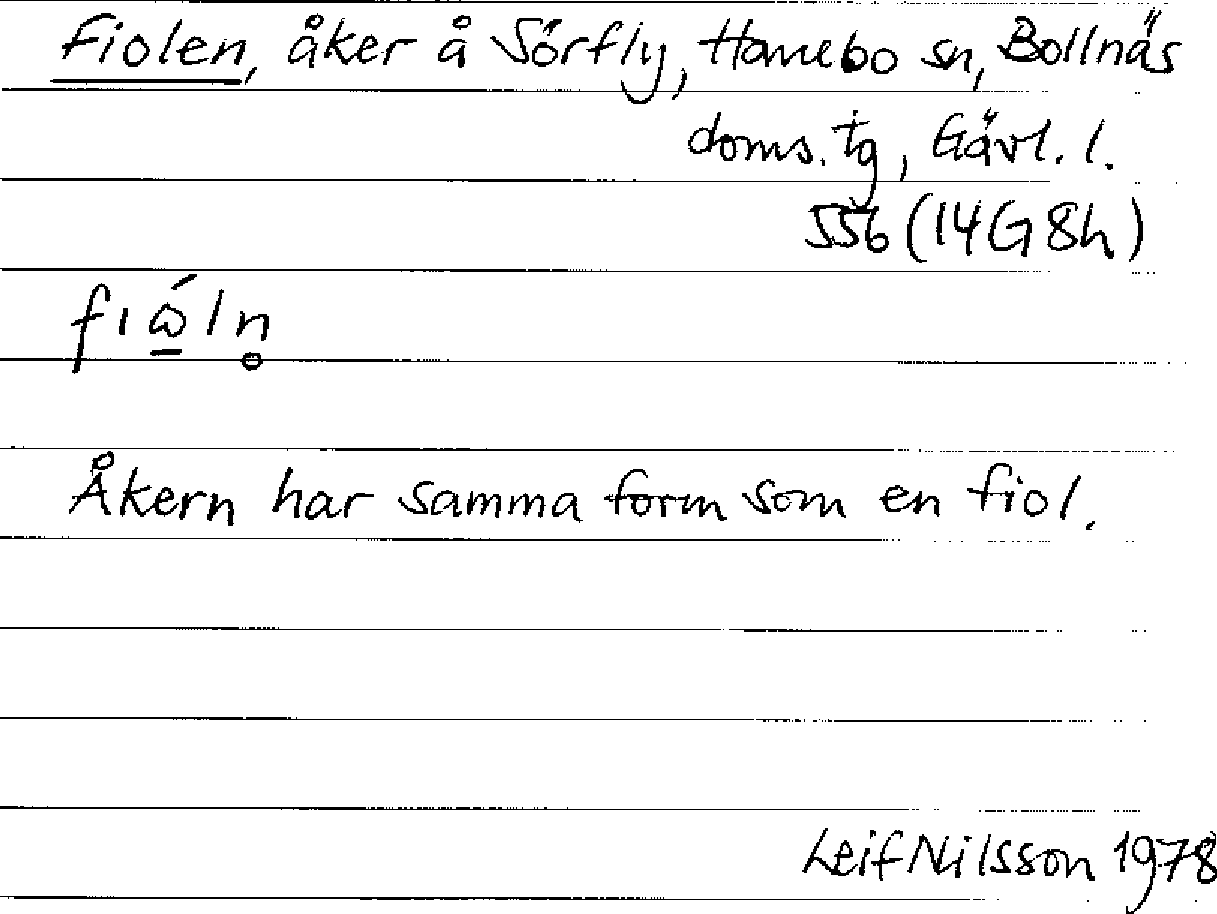 Fiolen, åker å Sörfly, Hanebo sn, Bollnäs
doms. tg, Gävl. l.
556 (14G 8h)
fıώ̲ln̥
Åkern har samma form som en fiol.
Leif Nilsson 1978